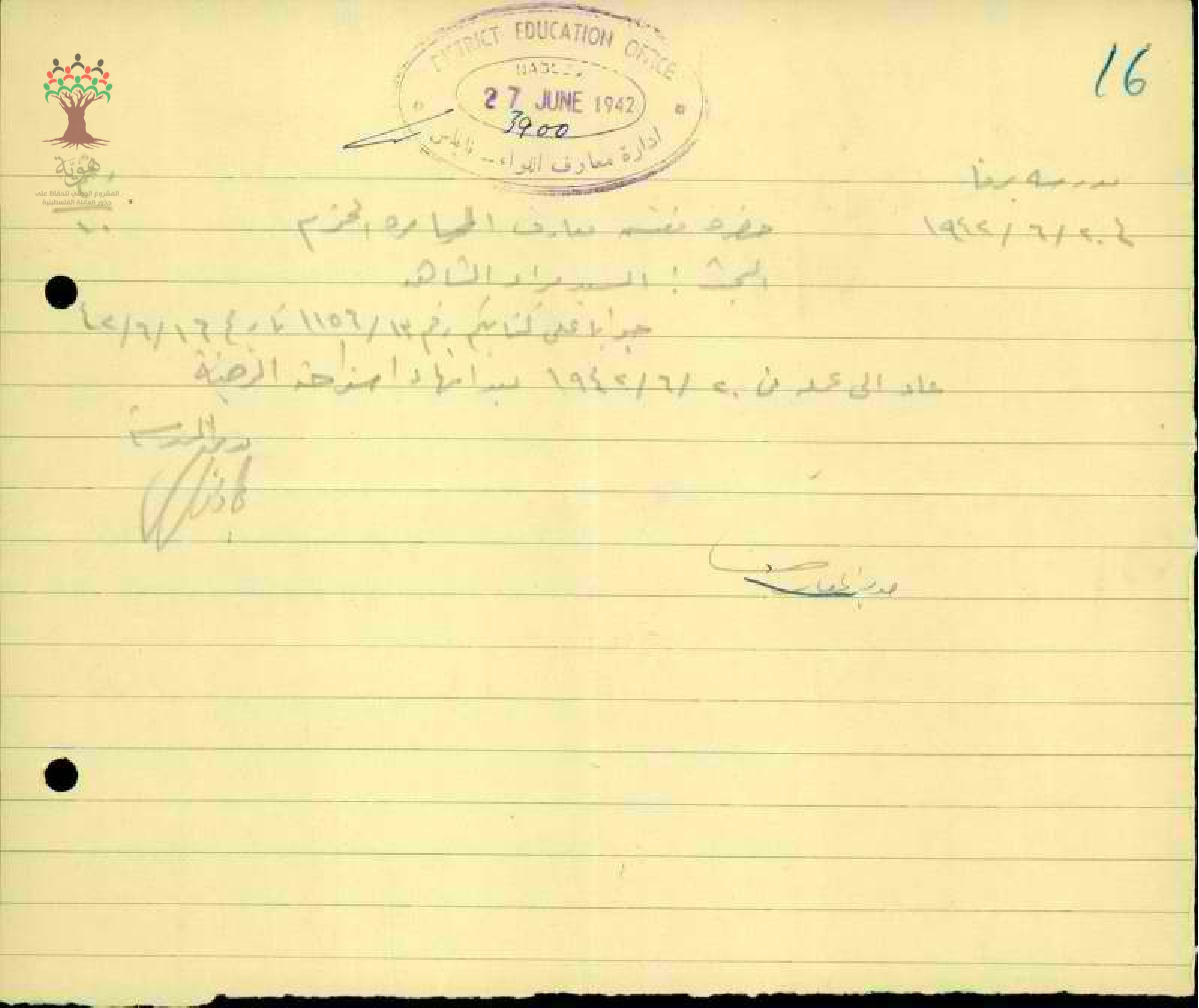 DISTRICT EDUCATION OFFICE
NABLUS
27 JUNE 1942
3900
ادارة معارف اللواء - نابلس
16
هوية
المشروع الوطني للحفاظ على
جذور العائلة الفلسطينية
مدرسة برقا
في ٢٠/٦/١٩٤٢
حضرة مفتش معارف المحترم
البحث : السيد مراد الشاهد
جوابا على كتابكم رقم ١٣/١١٥٦ تاريخ ١٦/٦/٤٢
عاد الى عمله في ٢٠/٦/١٩٤٢ بعد انهاء اجازته المرضية
مدير المدرسة